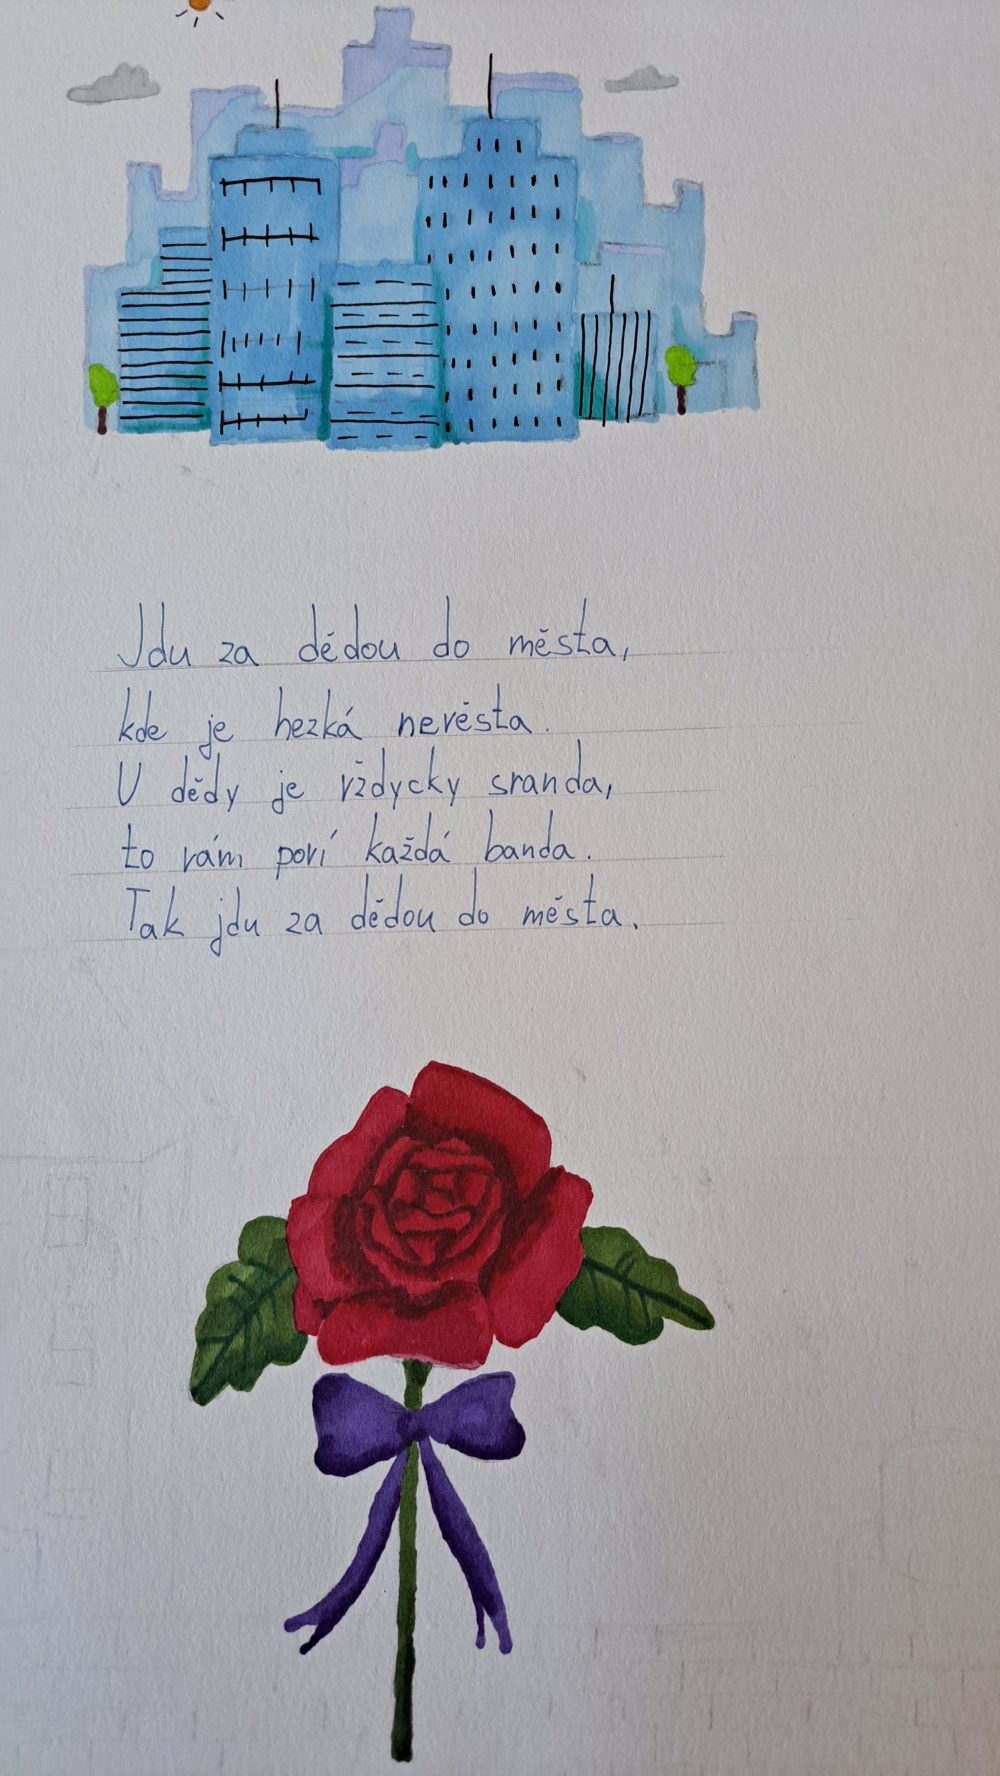 Jdu za dědou do města,
kde je hezká nevěsta.
U dědy je vždycky sranda,
to vám poví každá banda.
Tak jdu za dědou do města.